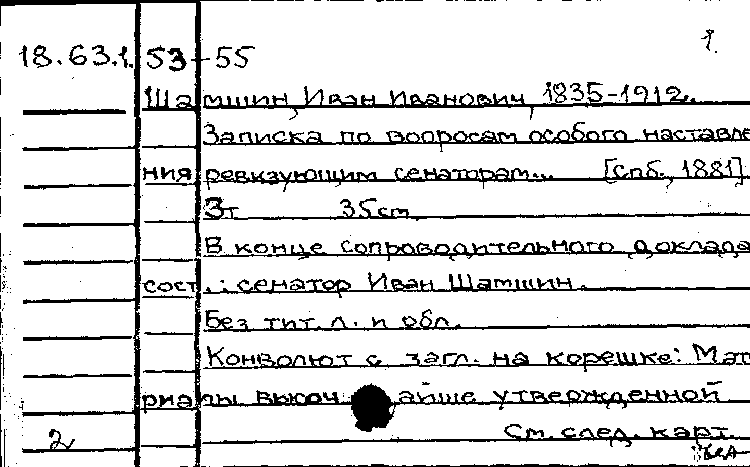 1.
18.63.1.53-55
Шамшин, Иван Иванович, 1835-1912.
Записка по вопросам особого наставле
ния ревизующим сенаторам... [спб., 1881]
3т 35см
В конце сопроводительного доклада
сост.: сенатор Иван Шамшин.
Без тит. л. и обл.
Конволют с загл. на корешке: Мат
риалы высочайше утвержденной
2 См. след. карт.